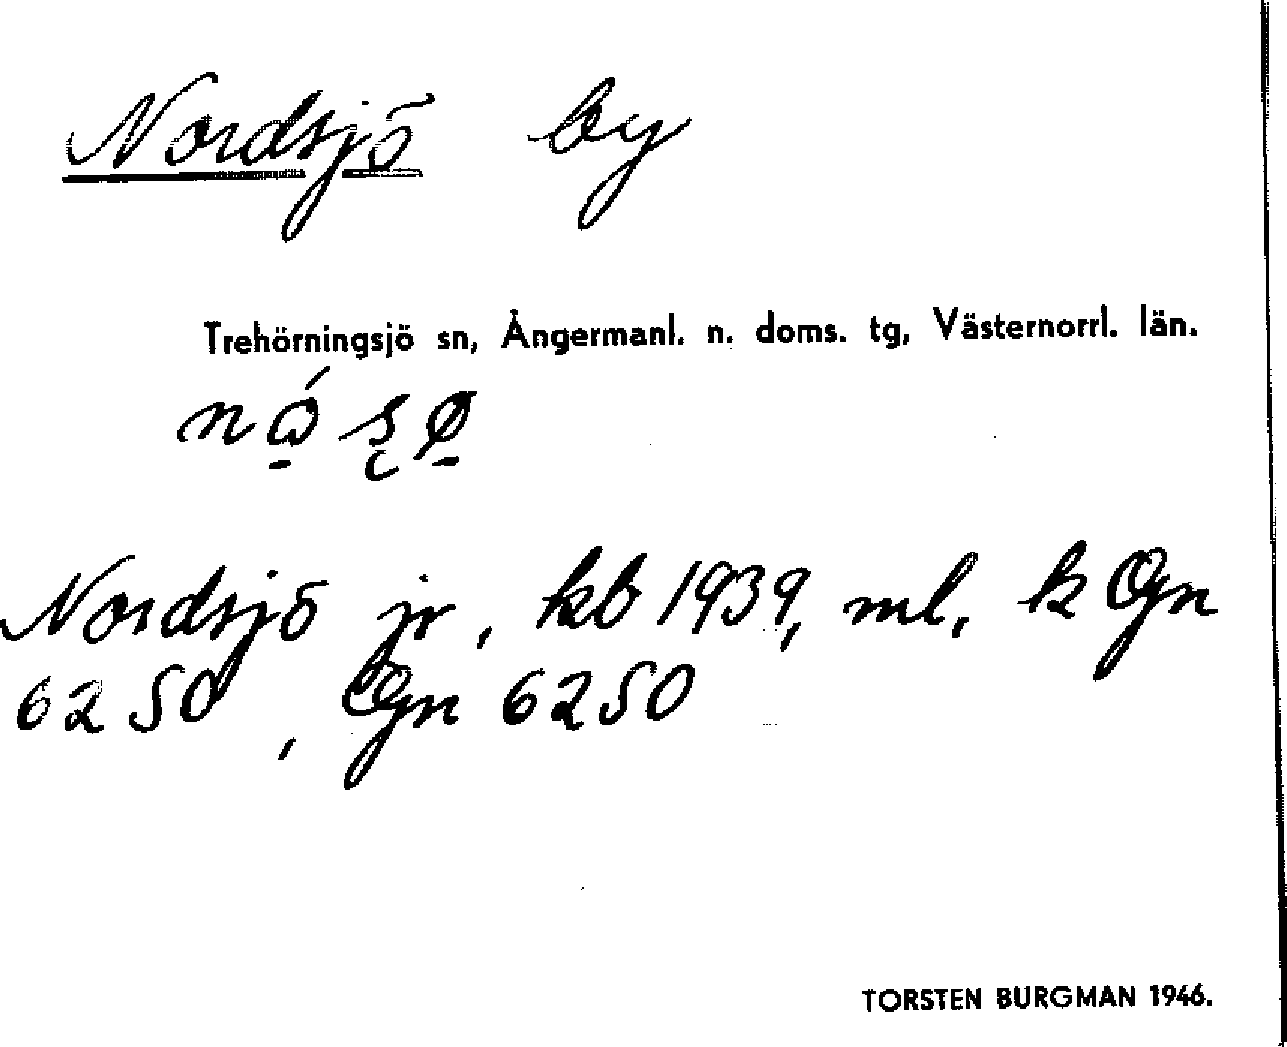 Nordsjö by
Trehörningsjö sn, Ångermanl. n. doms. tg, Västernorrl. län.
Nordsjö jr, kb 1939, ml, k Ogn
6250, Ogn 6250
TORSTEN BURGMAN 1946.